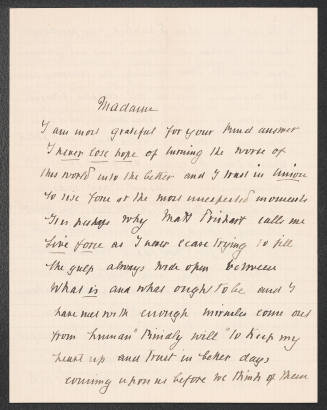 Madame
I am most grateful for your kind answer
I never lose hope of turning the worse of
this world into the better and I trust in
to rise fore at the most unexpected moments
perhaps why calls me
as I never cease trying to fill
the gulp always wide open between
What is and what ought to be and I
have met with enough miracles come out
from "human" Kindly will" to keep my
heart up and trust in better days
coming upon us before we think of them